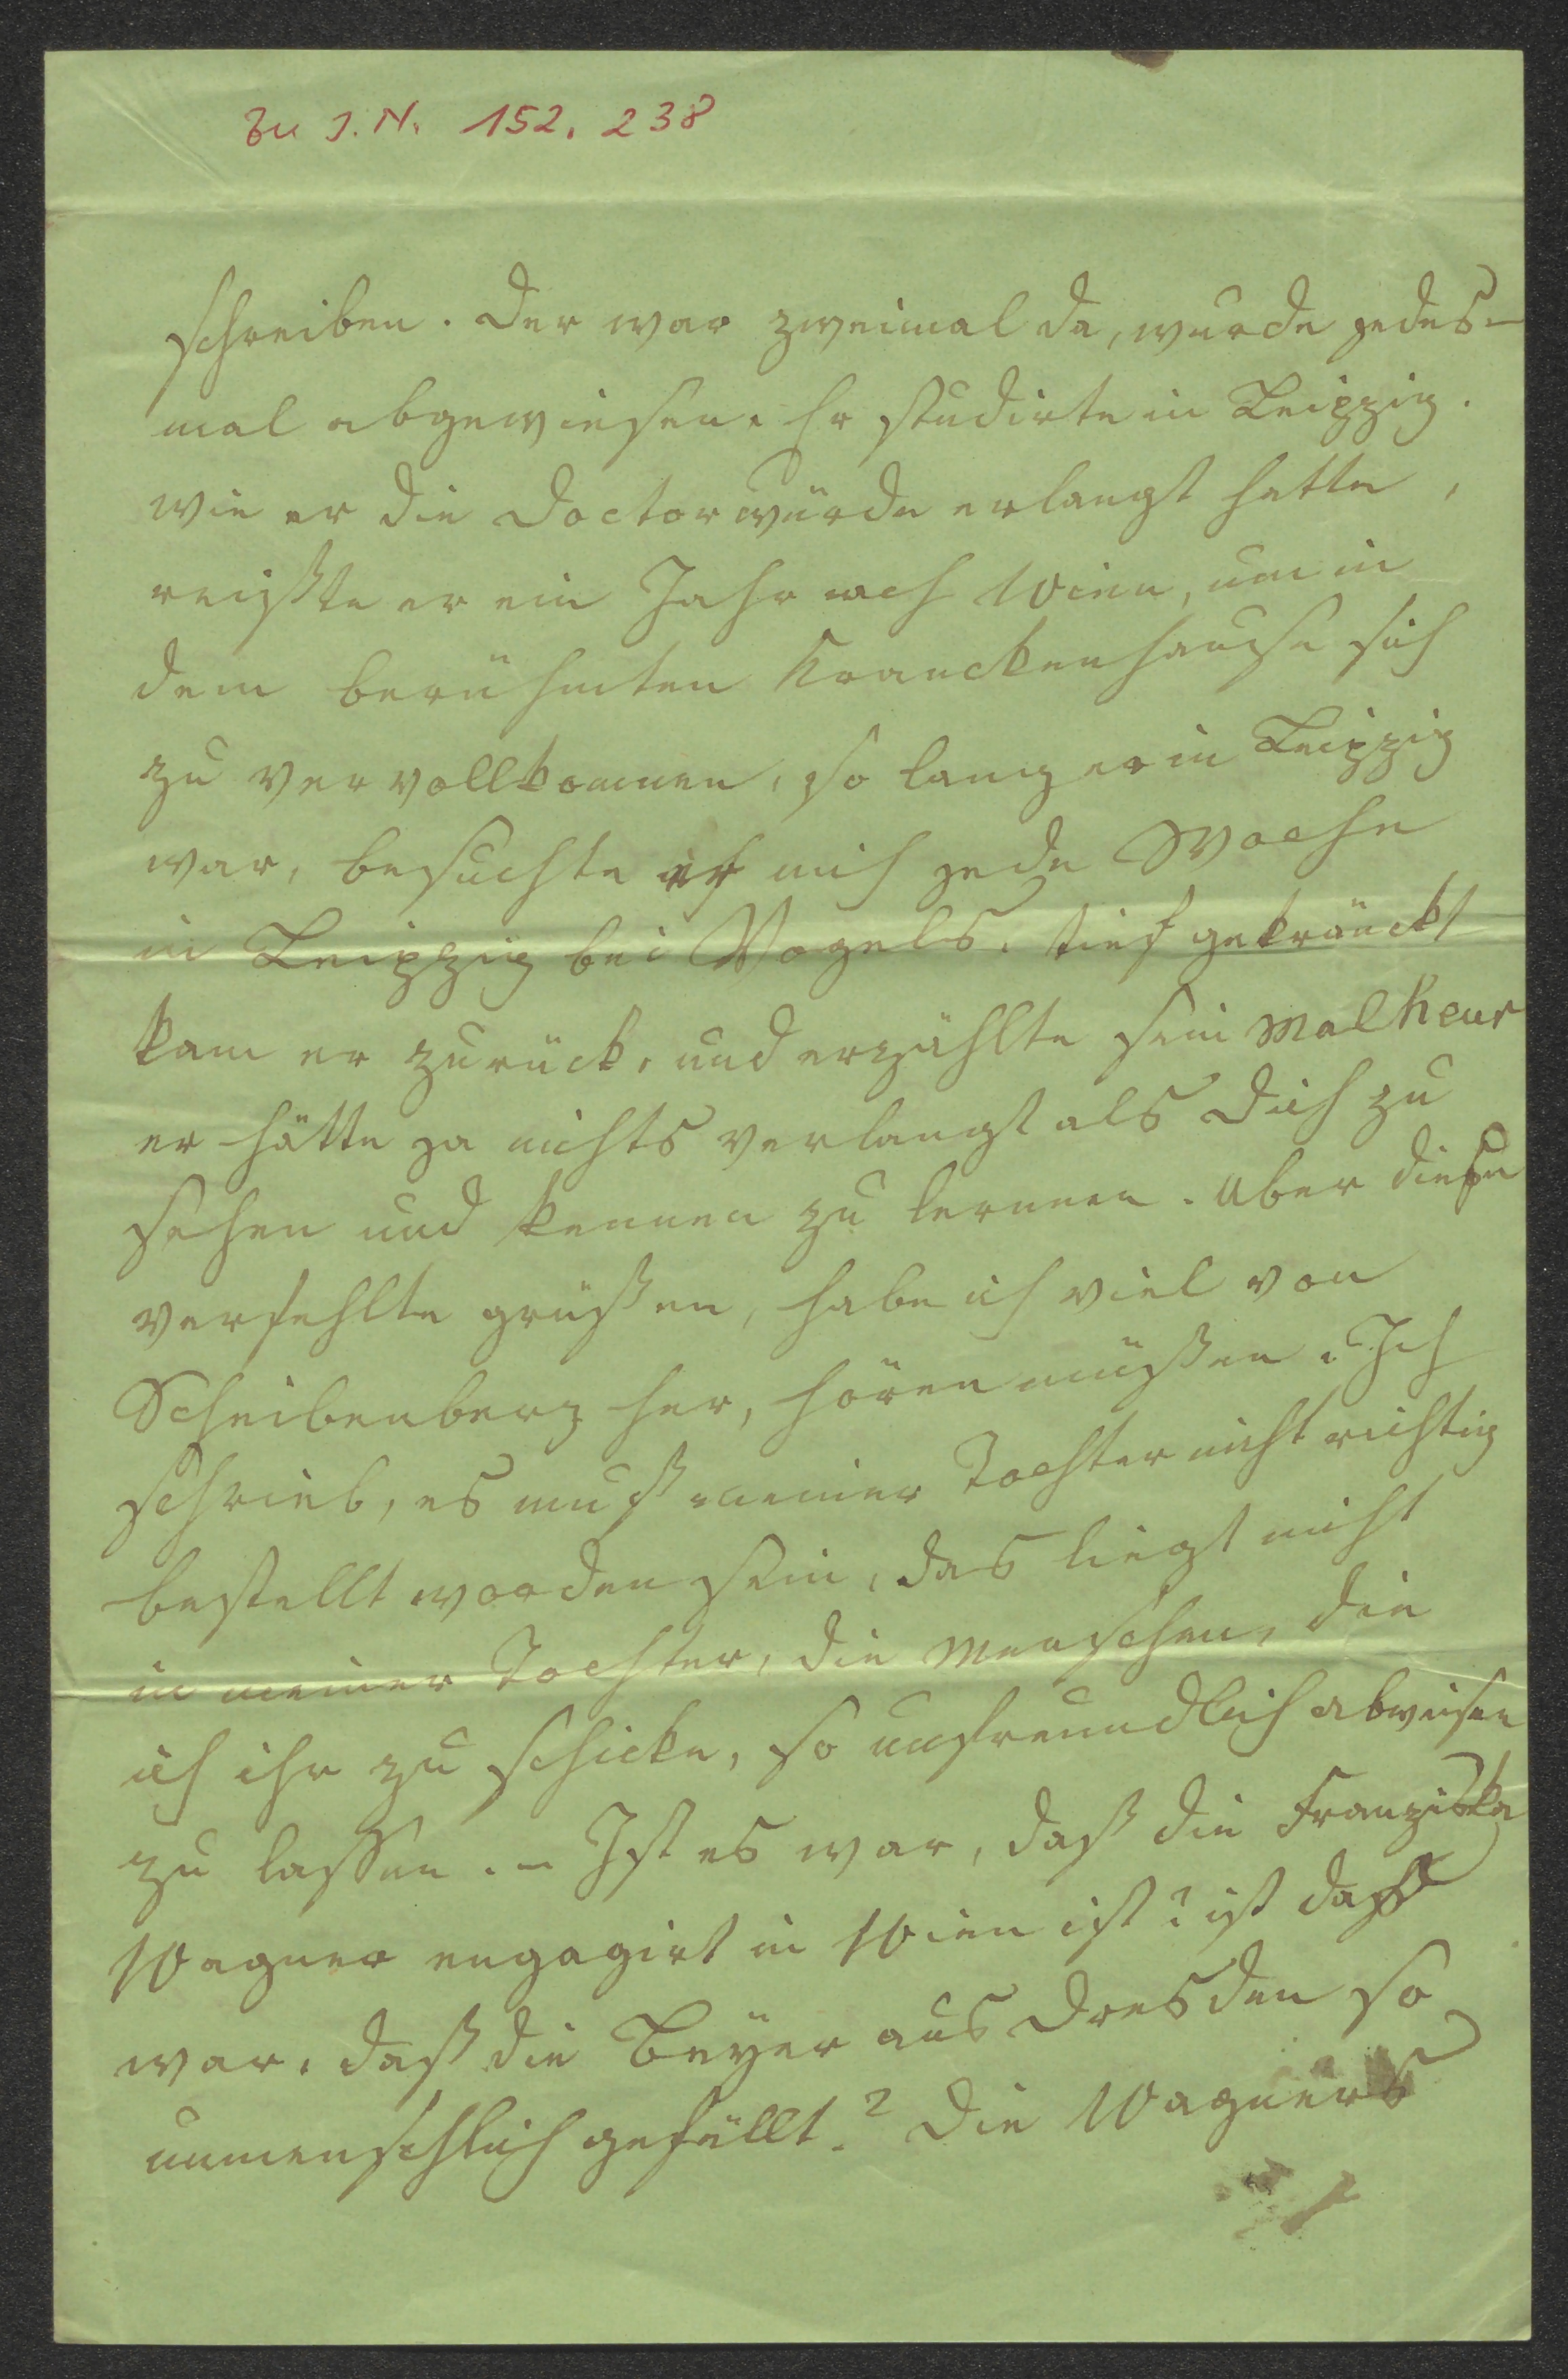 Zu J. N. 152.238
schreiben. Der war zweimal da, wurde jedes-
mal abgewiesen. Er studirte in Leipzig.
wie er die Doctorwürde erlangt hatte,
reißte er ein Jahr nach Wien, um in
dem berühmten Kranckenhause sich
zu vervollkommen, so lang er in Leipzig
war, besuchte er mich jede Woche
in Leipzig bei Vogels. tief gekränckt
kam er zurück, und erzählte sein Malheur
er hätte ja nichts verlangt als Dich zu
sehen und kennen zu lernnen. Uber diese
verfehlte grüßen, habe ich viel von
Scheibenberg her, hören müßen. Ich
schrieb, es muß meiner Tochter nicht richtig
bestellt worden sein, das liegt nicht
in meiner Tochter, die Menschen, die
ich ihr zu schicke, so unfreundlich abweisen
zu laßen. – Ist es war, daß die Franziska
Wagner engagirt in Wien ist? ist daß
war, daß die Beÿer aus Dresden so
unmenschlich gefällt? Die Wagners